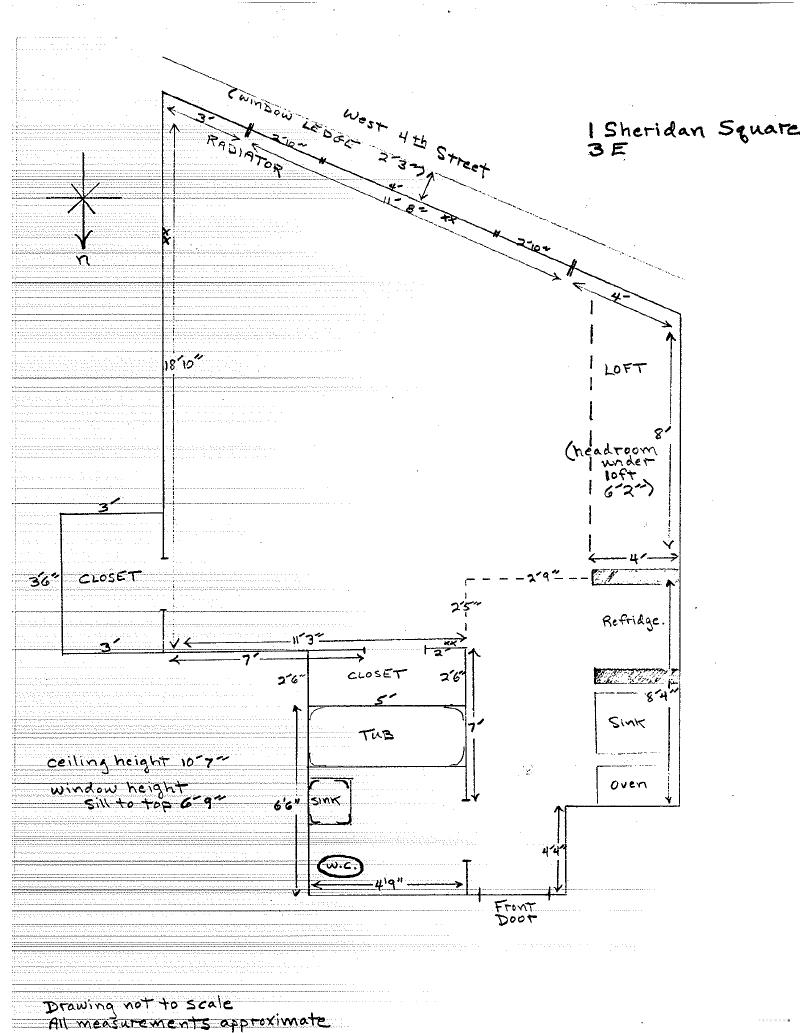 1 Sheridan Square
3E
West 4th Street
(WINDOW LEDGE 2'3")
3'
RADIATOR
2'10"
4'
11'8"
2'10"
4'
n
18'10"
LOFT
8'
(headroom
under
loft
6'2")
4'
3'
3'6"
CLOSET
3'
2'9"
2'5"
Refridge.
11'3"
7'
2'
2'6"
CLOSET
2'6"
5'
8'4"
7'
TUB
Sink
Oven
ceiling height 10'7"
window height
Sill to top 6'9"
6'6"
SINK
W.C.
4'4"
4'9"
Front
Door
Drawing not to scale
All measurements approximate